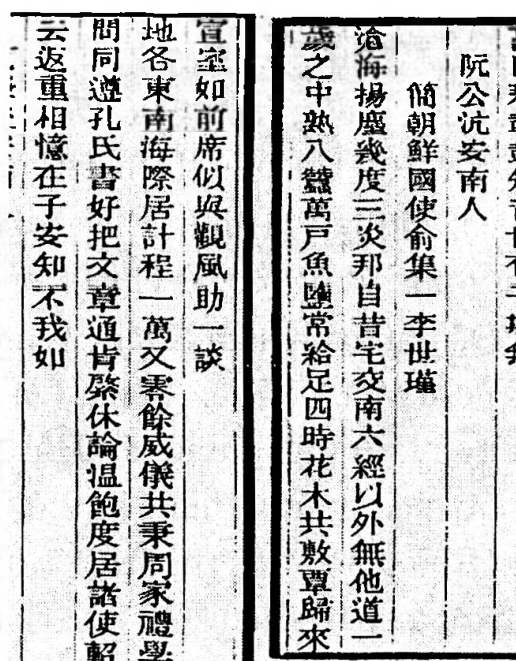 阮公沆安南人
簡朝鮮國使俞集一李世瑾
滄海揚塵幾度三炎邦自昔宅交南六經以外無他道一
歲之中熟八蠶萬戶魚鹽常給足四時花木共敷覃歸來
宣室如前席似與觀風助一談
地各東南海際居計程一萬又零餘威儀共秉周家禮學
問同遵孔氏書好把文章通肯綮休論温飽度居諸使軺
云返重相憶在子安知不我如